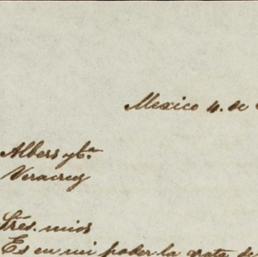 Mexico 4. de
Albers y Ca.
Veracruz
Sres. mios
Es en mi poder la grata de